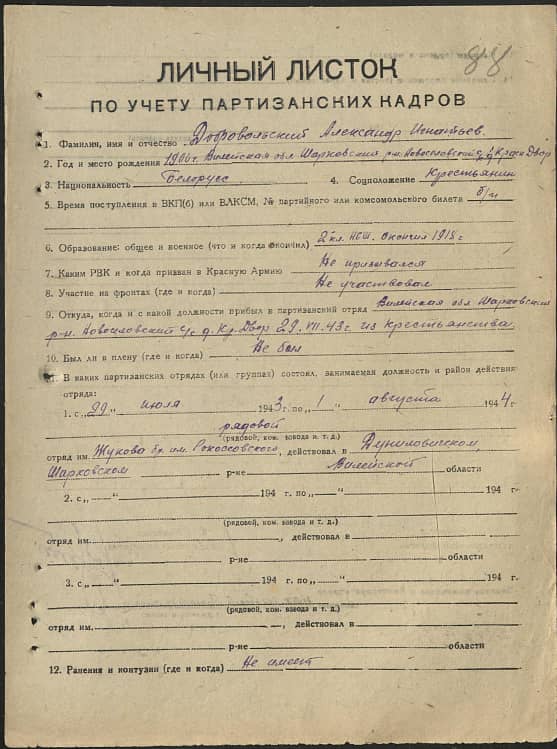 88
ЛИЧНЫЙ ЛИСТОК
ПО УЧЕТУ ПАРТИЗАНСКИХ КАДРОВ
1. Фамилия, имя и отчество Добровольский Александр Игнатьев.
2. Год и место рождения 1906 г. Вилейская обл Шарковский р-н Новоселовский с/с д. Красн Двор
3. Национальность Белорусс 4. Соцположение Крестьянин
5. Время поступления в ВКП(б) или ВЛКСМ, № партийного или комсомольского билета б/п
6. Образование: общее и военное (что и когда окончил) 2 кл. НСШ. окончил 1918 г
7. Каким РВК и когда призван в Красную Армию Не призывался
8. Участие на фронтах (где и когда) Не участвовал
9. Откуда, когда и с какой должности прибыл в партизанский отряд Вилейская обл Шарковский
р-н. Новоселовский с/с д. Кр. Двор 29.VII.43 г. из крестьянства
10. Был ли в плену (где и когда) Не был
11. В каких партизанских отрядах (или группах) состоял, занимаемая должность и район действия
отряда:
1. с „29“ июля 1943 г. по „1“ августа 1944 г.
рядовой
(рядовой, ком. взвода и т. д.)
отряд им. Жукова бр. им. Рокоссовского, действовал в Дуниловичском,
Шарковском р-не Вилейской области
2. с „ “ 194 г. по „ “ 194 г.
(рядовой, ком. взвода и т. д.)
отряд им. , действовал в
р-не области
3. с „ “ 194 г. по „ “ 194 г.
(рядовой, ком. взвода и т. д.)
отряд им. , действовал в
р-не области
12. Ранения и контузии (где и когда) Не имеет